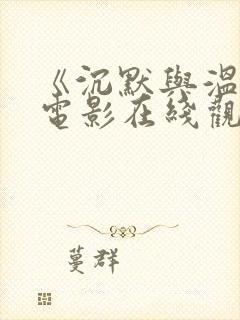 《沉默與溫
電影在綫觀
蔓群